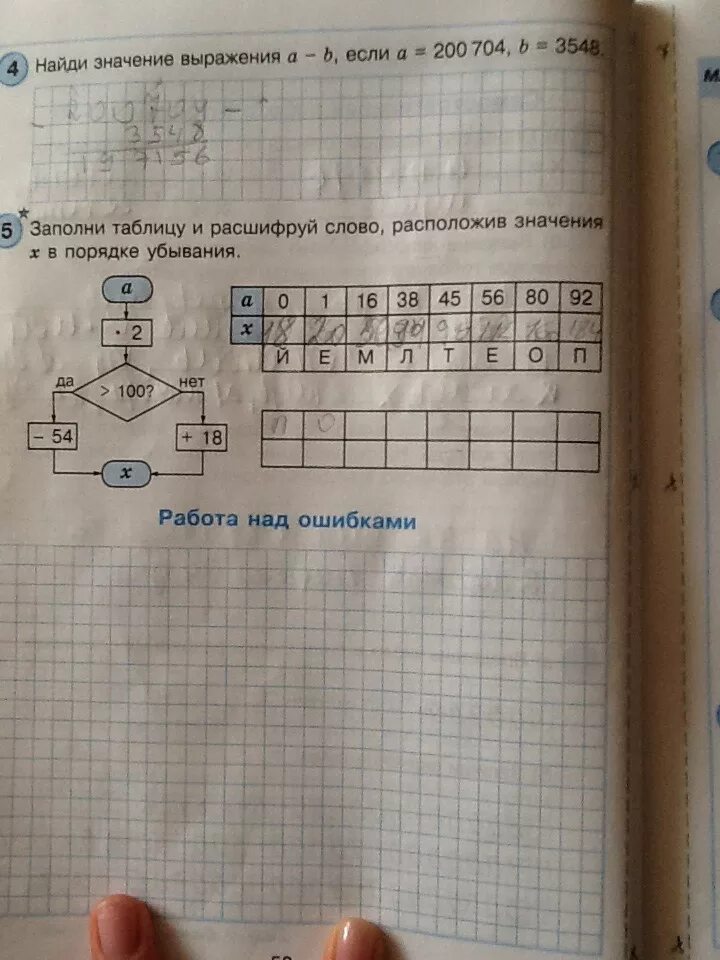 4 Найди значение выражения a – b, если a = 200 704, b = 3548.
200704 –
– 3548
197156
5 Заполни таблицу и расшифруй слово, расположив значения
x в порядке убывания.
a
· 2
да > 100? нет
– 54 + 18
x
a 0 1 16 38 45 56 80 92
x 18 20 50
Й Е М Л Т Е О П
П О
Работа над ошибками